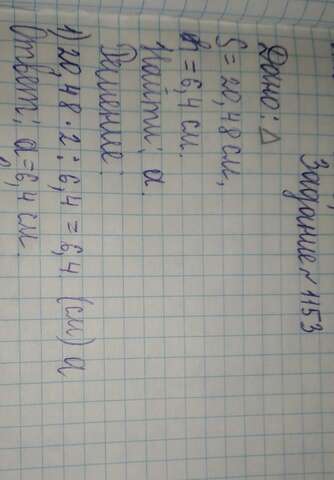 Задание №1153
Дано: △
S = 20,48 см,
h = 6,4 см.
Найти: a.
Решение:
1) 20,48 · 2 : 6,4 = 6,4 (см) a
Ответ: a = 6,4 см.